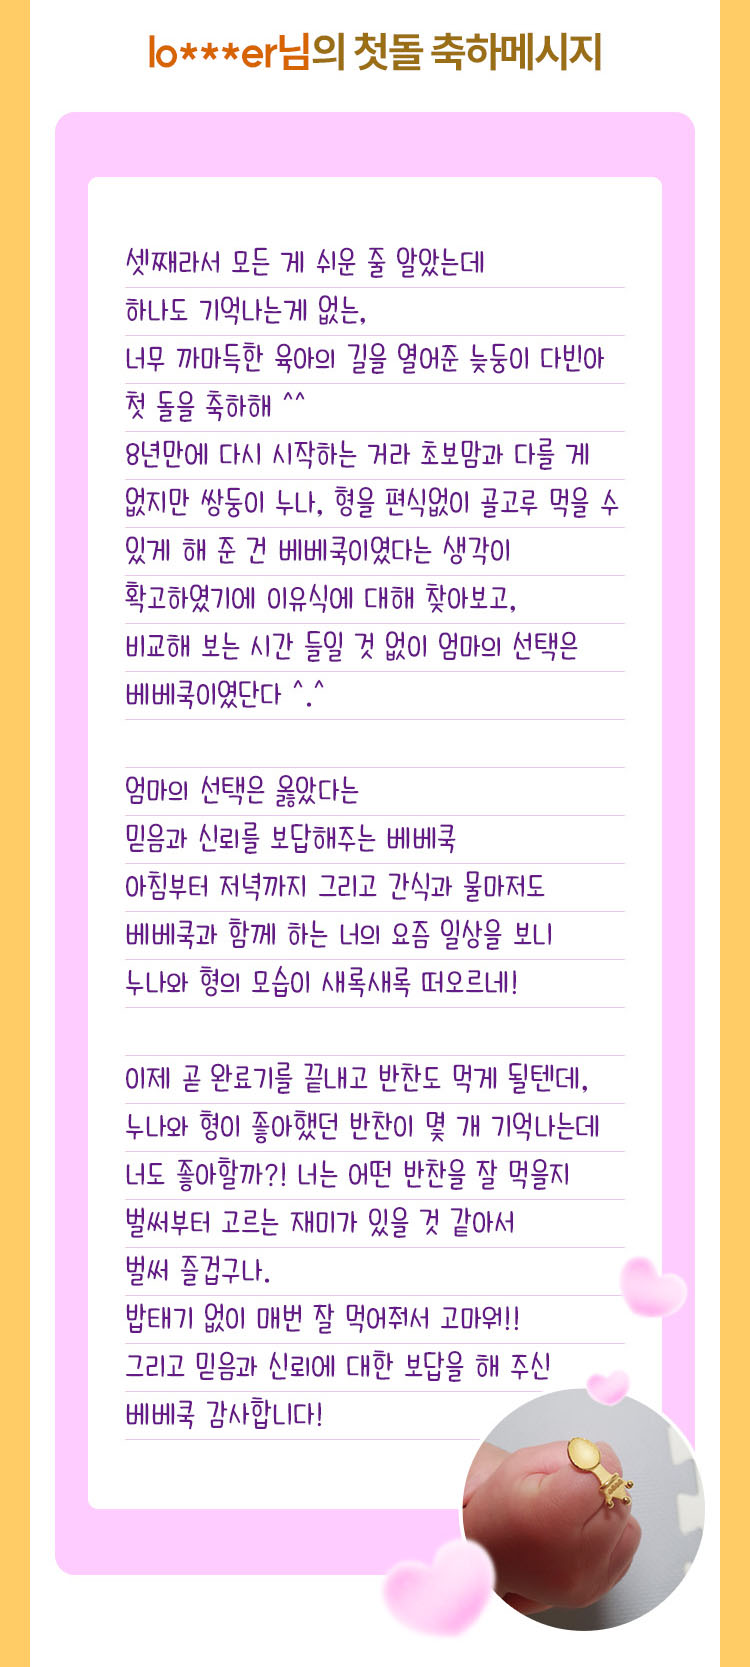 lo***er님의 첫돌 축하메시지
셋째라서 모든 게 쉬운 줄 알았는데
하나도 기억나는게 없는,
너무 까마득한 육아의 길을 열어준 늦둥이 다빈아
첫 돌을 축하해 ^^
8년만에 다시 시작하는 거라 초보맘과 다를 게
없지만 쌍둥이 누나, 형을 편식없이 골고루 먹을 수
있게 해 준 건 베베쿡이였다는 생각이
확고하였기에 이유식에 대해 찾아보고,
비교해 보는 시간 들일 것 없이 엄마의 선택은
베베쿡이였단다 ^.^
엄마의 선택은 옳았다는
믿음과 신뢰를 보답해주는 베베쿡
아침부터 저녁까지 그리고 간식과 물마저도
베베쿡과 함께 하는 너의 요즘 일상을 보니
누나와 형의 모습이 새록새록 떠오르네!
이제 곧 완료기를 끝내고 반찬도 먹게 될텐데,
누나와 형이 좋아했던 반찬이 몇 개 기억나는데
너도 좋아할까?! 너는 어떤 반찬을 잘 먹을지
벌써부터 고르는 재미가 있을 것 같아서
벌써 즐겁구나.
밥태기 없이 매번 잘 먹어줘서 고마워!!
그리고 믿음과 신뢰에 대한 보답을 해 주신
베베쿡 감사합니다!